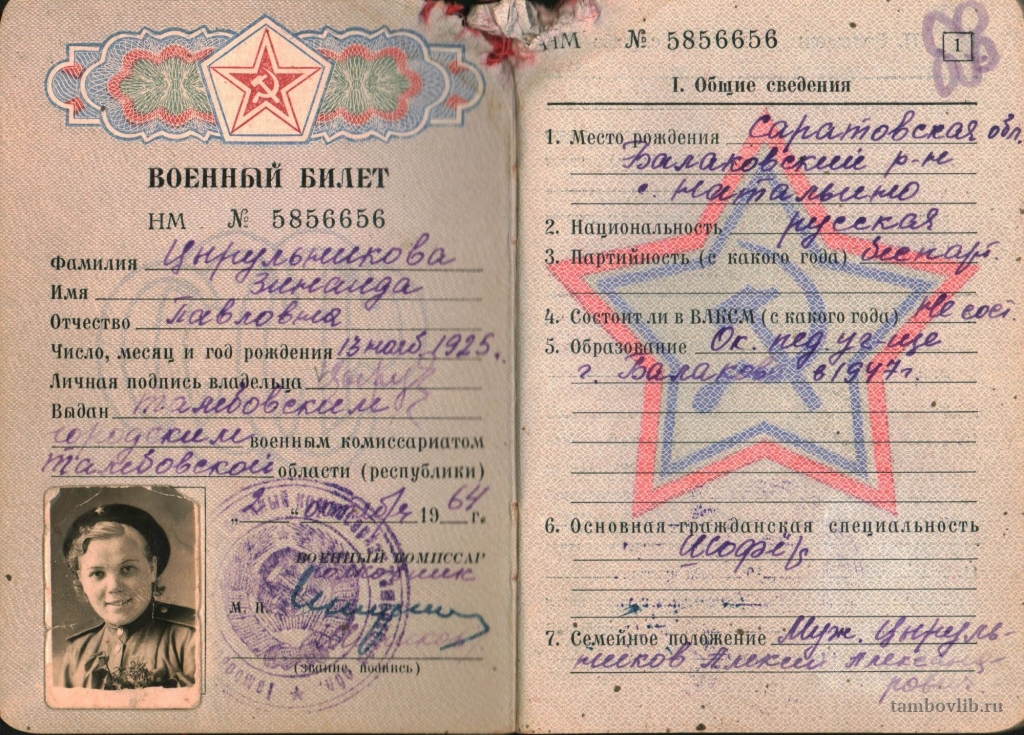 ВОЕННЫЙ БИЛЕТ
НМ № 5856656
Фамилия Цырульникова
Имя Зинаида
Отчество Павловна
Число, месяц и год рождения 13 нояб. 1925.
Личная подпись владельца
Выдан Тамбовским
городским военным комиссариатом
Тамбовской области (республики)
„2“ октября 1964 г.
ВОЕННЫЙ КОМИССАР
полковник
М. П.
(звание, подпись)
НМ № 5856656
1
I. Общие сведения
1. Место рождения Саратовская обл.
Балаковский р-н
с. Натальино
2. Национальность русская
3. Партийность (с какого года) беспарт.
4. Состоит ли в ВЛКСМ (с какого года) Не сост.
5. Образование Ок. пед уч-ще
г. Балаково в 1947 г.
6. Основная гражданская специальность
Шофёр
7. Семейное положение Муж. Цыруль-
ников Алексей Александ-
рович
tambovlib.ru